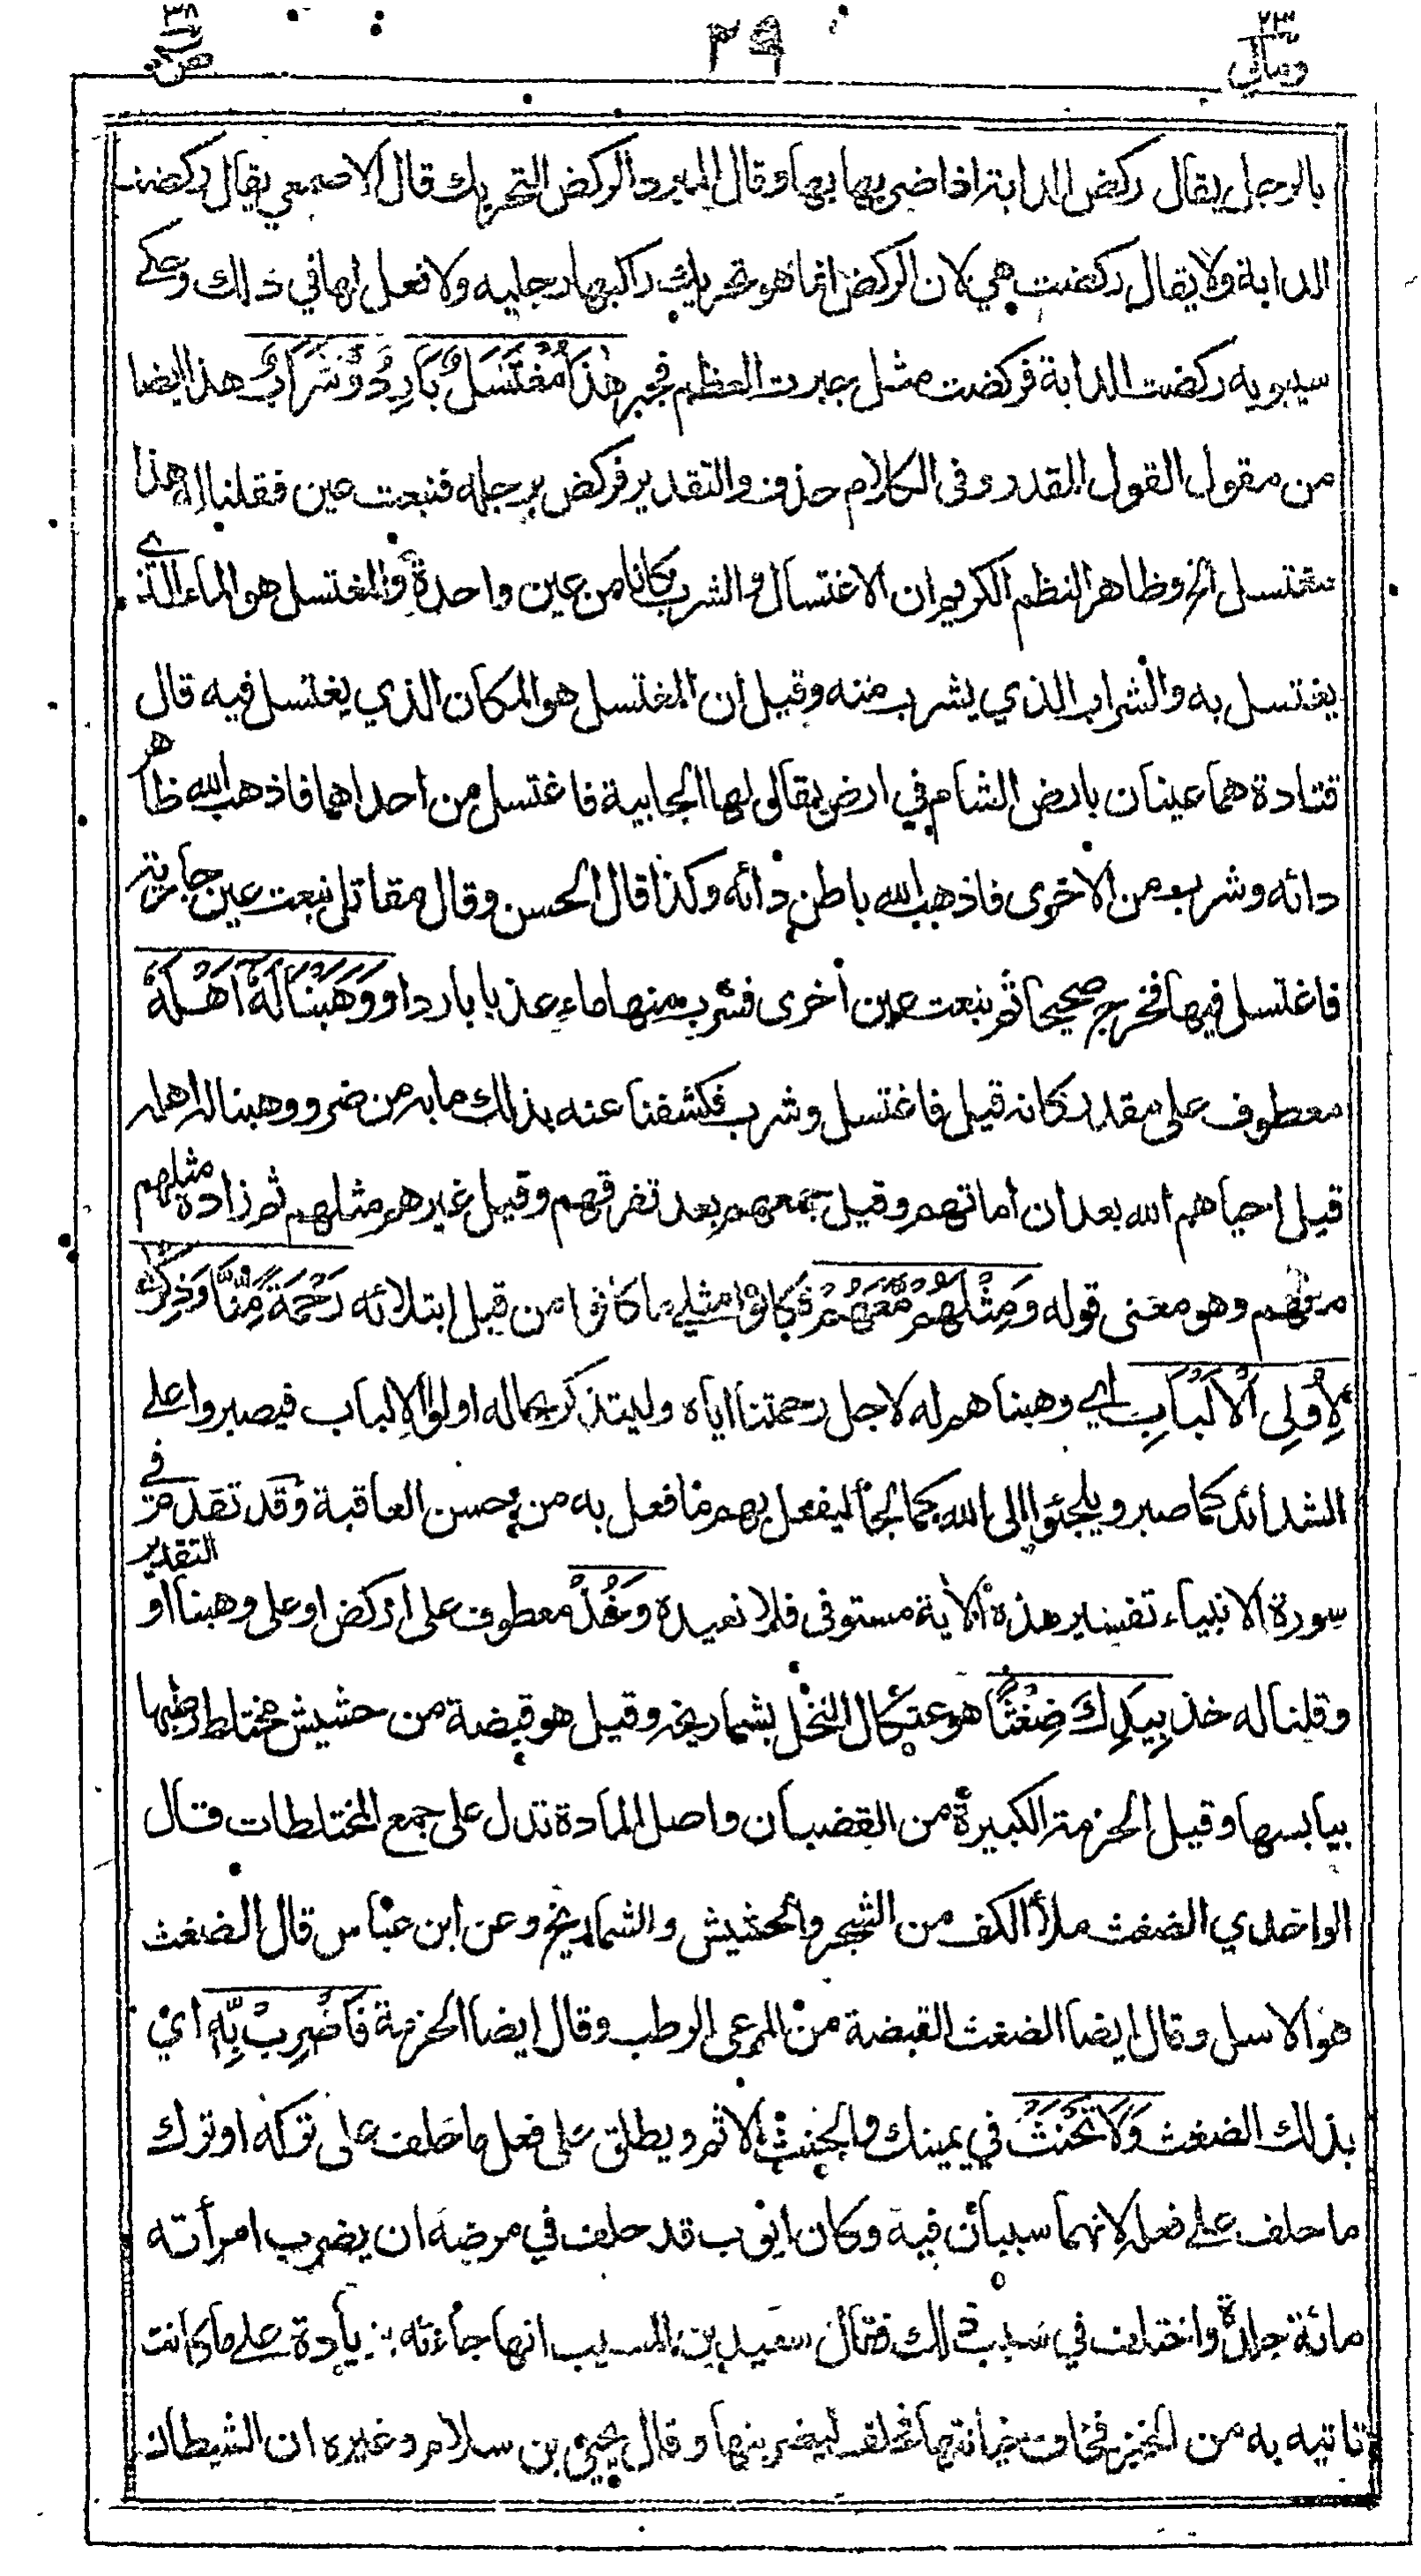 ٢٣
ومالي
٣٩
٣٨
ص
بالرجل يقال ركض الدابة اذا ضربها بها وقال المبرد الركض التحريك قال الاصمعي يقال ركضت
الدابة ولا يقال ركضت هي لان الركض انما هو تحريك راكبها رجليه ولا فعل لها في ذلك وحكے
سيبويه ركضت الدابة فركضت مثل جبرت العظم فجبر هٰذَا مُغْتَسَلٌ بَارِدٌ وَّشَرَابٌ هذا ايضا
من مقول القول المقدر وفى الكلام حذف والتقدير فركض برجله فنبعت عين فقلنا له هذا
مغتسل الخ وظاهر النظم الكريم ان الاغتسال والشرب كانا من عين واحدة والمغتسل هو الماء الذے
يغتسل به والشراب الذي يشرب منه وقيل ان المغتسل هو المكان الذي يغتسل فيه قال
قتادة هما عينان بارض الشام في ارض يقال لها الجابية فاغتسل من احداهما فاذهب الله ظاهر
دائه وشرب من الاخرى فاذهب الله باطن دائه وكذا قال الحسن وقال مقاتل نبعت عين جارية
فاغتسل فيها فخرج صحيحا ثم نبعت عين أخرى فشرب منها ماء عذبا باردا وَوَهَبْنَا لَهٗٓ اَهْلَهٗ
معطوف على مقدر كانه قيل فاغتسل وشرب فكشفنا عنه بذلك ما به من ضر ووهبنا له اهله
قيل احياهم الله بعد ان اماتهم وقيل جمعهم بعد تفرقهم وقيل غيرهم مثلهم ثم زاده مثلهم
معهم وهو معنى قوله وَمِثْلَهُمْ مَّعَهُمْ فكانوا مثلي ما كانوا من قبل ابتلائه رَحْمَةً مِّنَّا وَذِكْرٰى
لِاُولِى الْاَلْبَابِ اي وهبناهم له لاجل رحمتنا اياه وليتذكر بحاله اولو الالباب فيصبروا على
الشدائد كما صبر ويلجئوا الى الله كما لجأ ليفعل بهم ما فعل به من حسن العاقبة وقد تقدم في
سورة الانبياء تفسير هذه الاية مستوفى فلا نعيده وَخُذْ معطوف على اركض او على وهبنا او التقدير
وقلنا له خذ بِيَدِكَ ضِغْثًا هو عثكال النخل بشماريخه وقيل هو قبضة من حشيش مختلط رطبها
بيابسها وقيل الحزمة الكبيرة من القضبان واصل المادة تدل على جمع المختلطات قال
الواحدي الضغث ملأ الكف من الشجر والحشيش والشماريخ وعن ابن عباس قال الضغث
هو الاسل وقال ايضا الضغث القبضة من المرعى الرطب وقال ايضا الحزمة فَاضْرِبْ بِّهٖ اي
بذلك الضغث وَلَا تَحْنَثْ في يمينك والحنث الاثم ويطلق على فعل ما حلف على تركه او ترك
ما حلف على فعله لانهما سببان فيه وكان ايوب قد حلف في مرضه ان يضرب امرأته
مائة جلدة واختلف في سبب ذلك فقال سعيد بن المسيب انها جاءته بزيادة على ما كانت
تاتيه به من الخبز فخاف خيانتها فحلف ليضربنها وقال يحيى بن سلام وغيره ان الشيطان